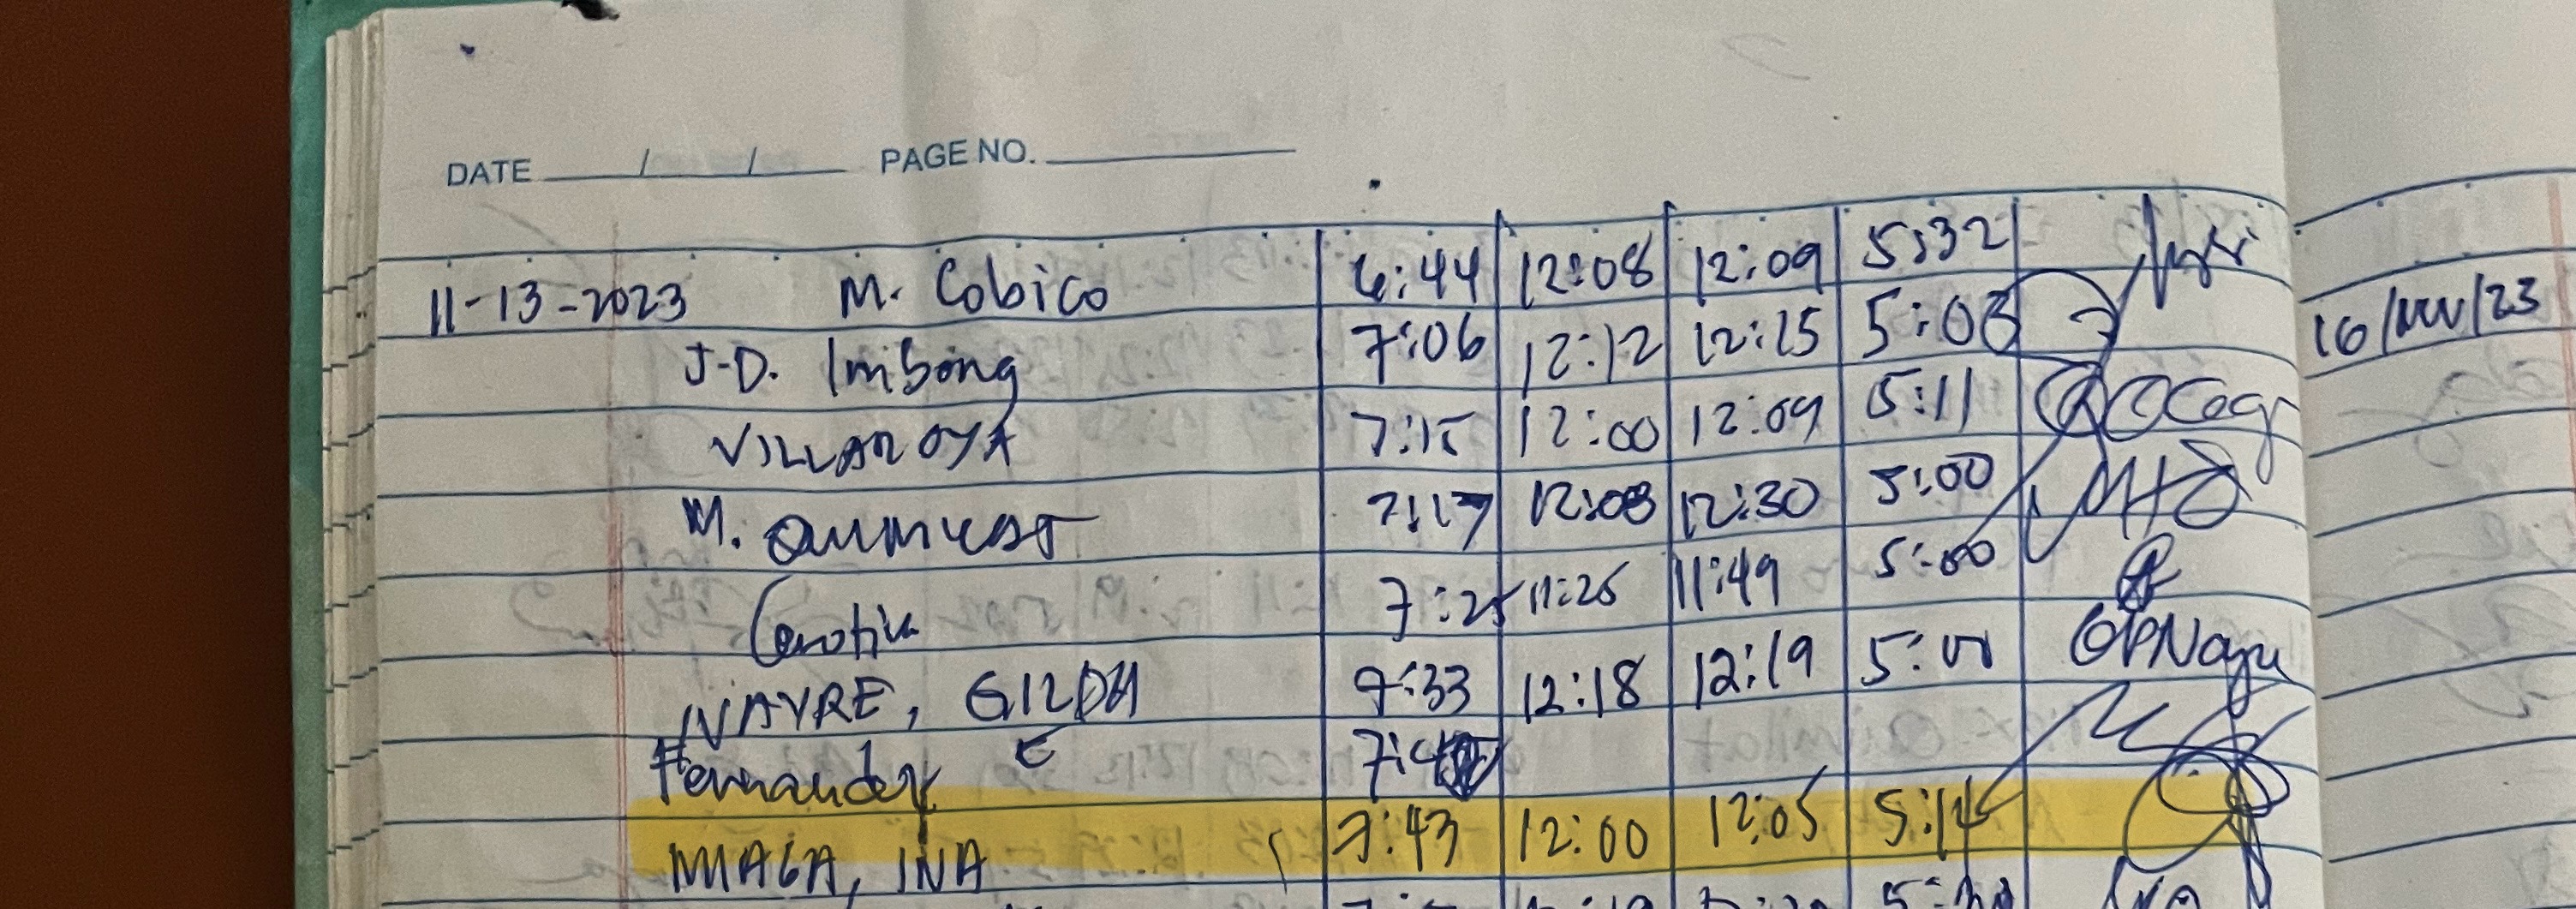 DATE / / PAGE NO.
11-13-2023 M. Cobico 6:44 12:08 12:09 5:32
J-D. Imbong 7:06 12:12 12:15 5:03
VILLAROYA 7:15 12:00 12:09 5:11
M. 7:17 12:08 12:30 5:00
7:25 11:25 11:49 5:00
NAYRE, GILDA 7:33 12:18 12:19 5:00
Fernandez
INA 7:43 12:00 12:05 5:14
16/NOV/23